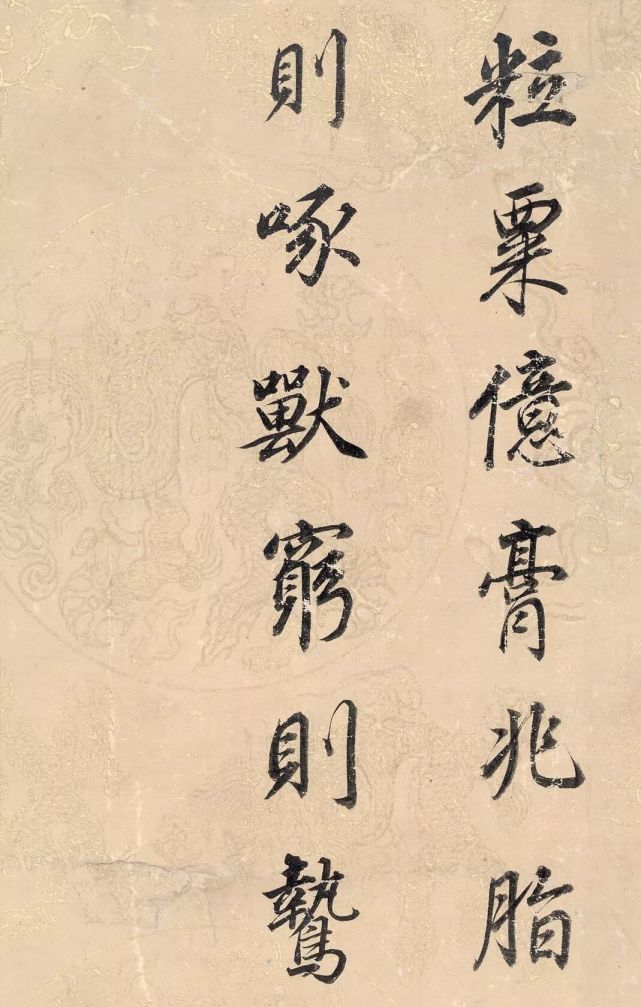 粒粟億膏兆脂
則啄獸窮則鷙